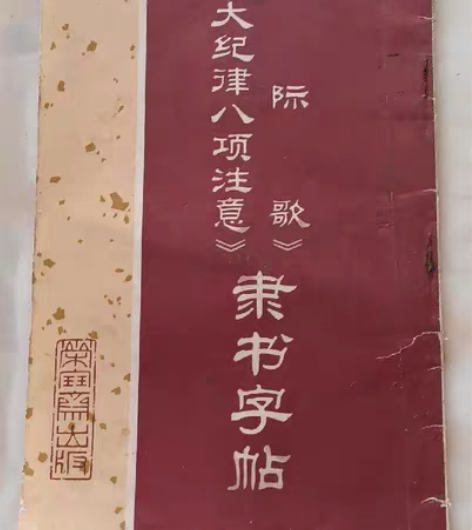 际歌》
大纪律八项注意》
隶书字帖
荣宝斋出版